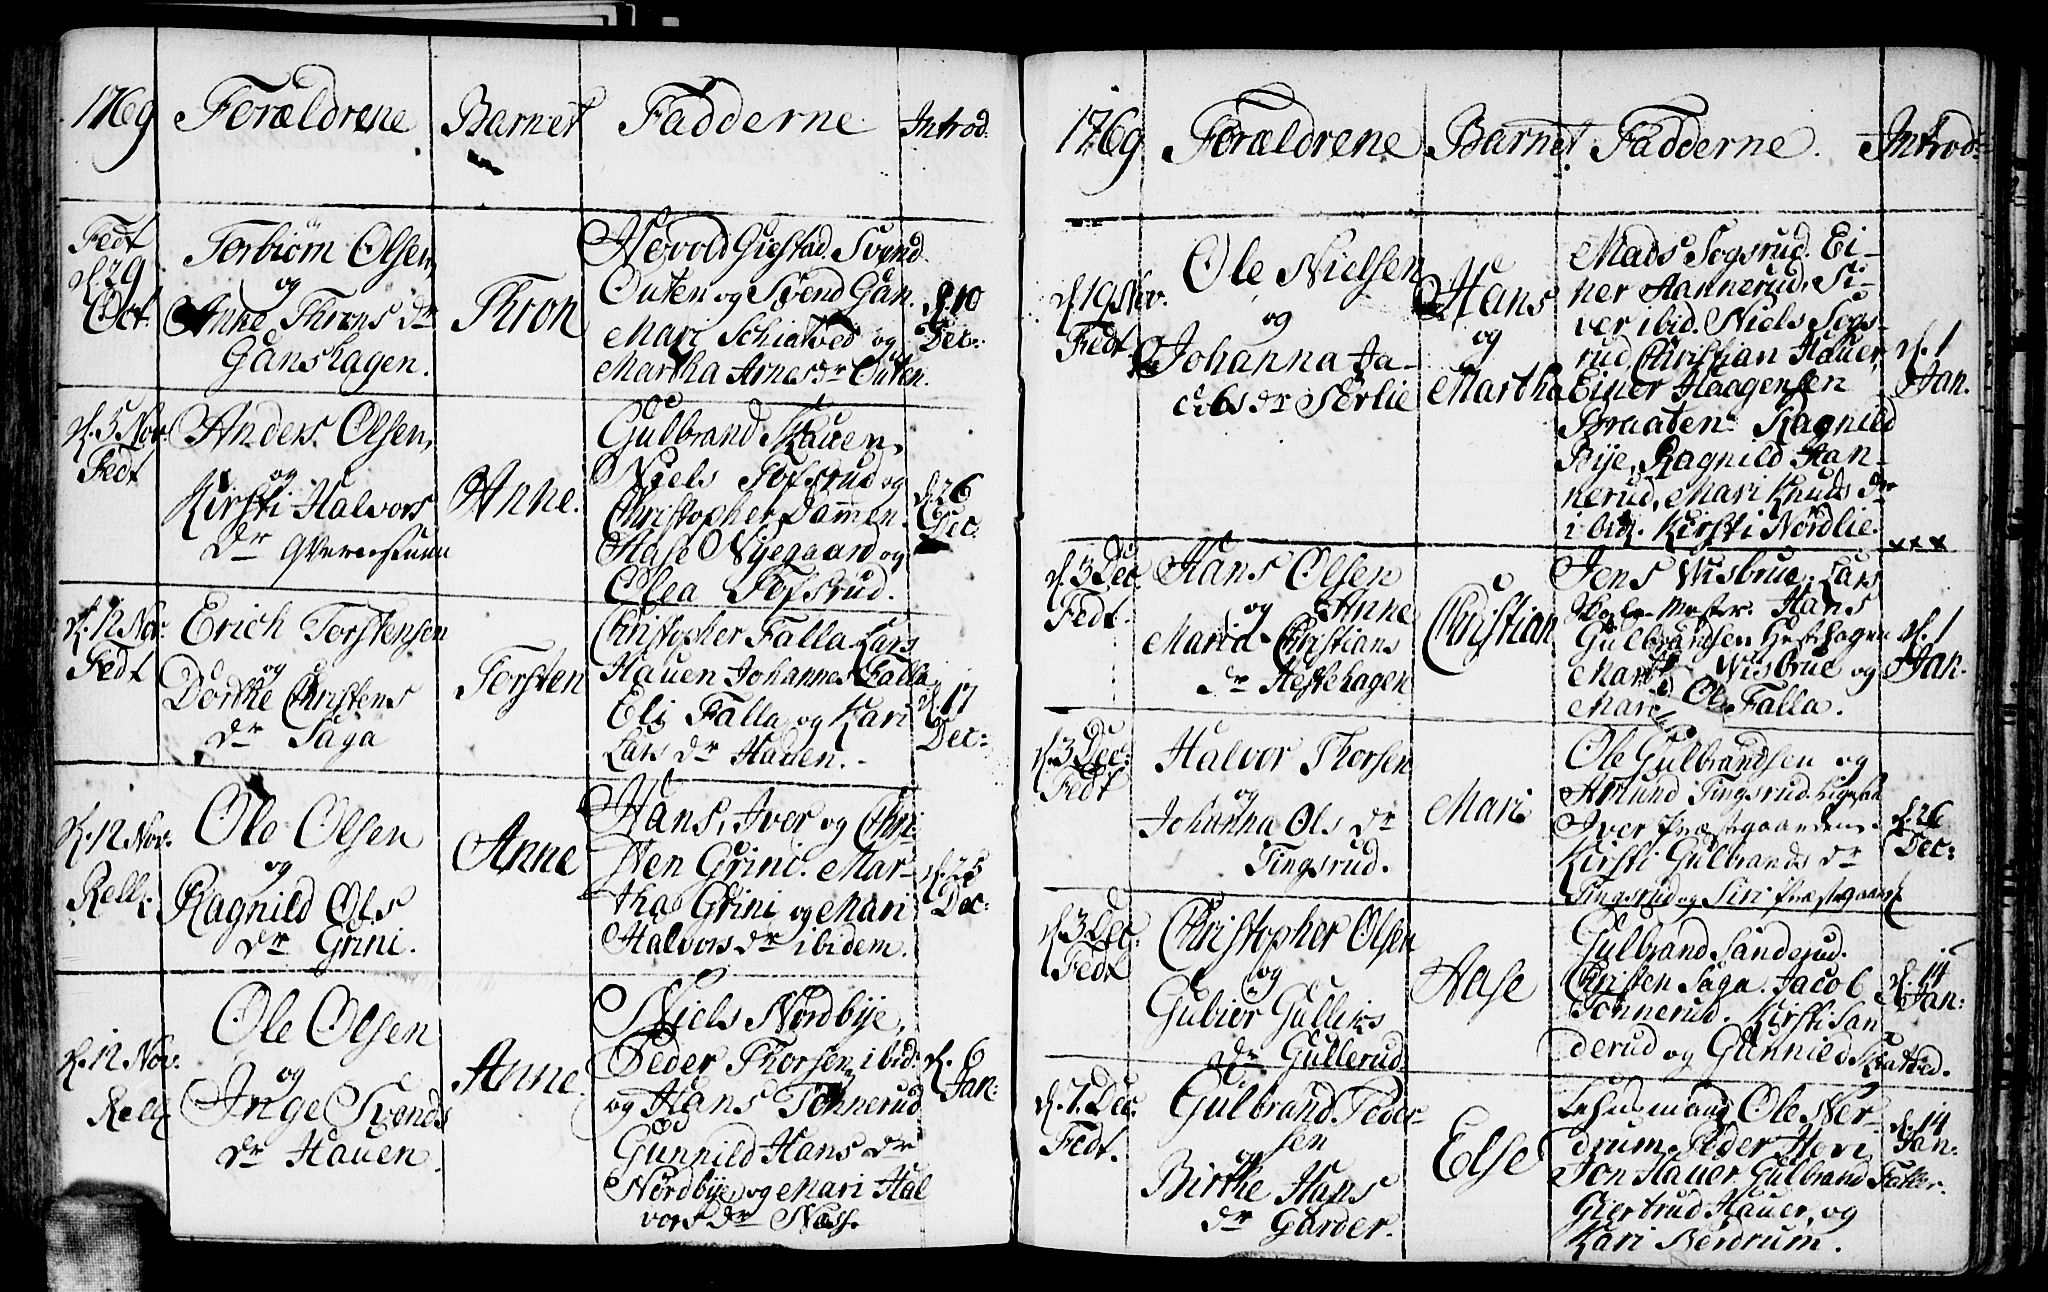 1769 Forældrene Barnet Fadderne Introd.
Fedt
d. 29
Oct.
Torbiörn Olsen,
og
Anne Throns dr
Ganshagen.
Thron
Nevold Giestad. Svend
Outen og Svend Gan.
Mari Schiatved og
Martha Arnes dr Outen.
d. 10
Dec:
d. 5 Nov.
Fedt
Anders Olsen,
og
Kirsti Halvors
dr
Anne.
Gulbrand Hauen,
Niels Tofsrud og
Christopher Dammen.
Aase Nyegaard og
Olea Tofsrud.
d. 26
Dec.
d. 12 Nov.
Fedt
Erich Torstensen
og
Dorthe Christens
dr Saga
Torsten
Christopher Falla. Lars
Hauen Johannes Falla
Eli Falla og Kari
Lars dr Hauen.
d. 17
Dec:
d. 12 Nov.
Rell:
Ole Olsen
og
Ragnild Ols
dr Grini.
Anne
Hans, Iver og Chri-
sten Grini. Mar-
tha Grini og Mari
Halvors dr ibidem.
d. 25
Dec:
d. 12 Nov.
Rell:
Ole Olsen
og
Inge Svends
dr Hauen.
Anne.
Niels Nordbye,
Peder Thorsen ibid:
og Hans Tonnerud
Gunnild Hans dr
Nordbye, og Mari Hal
vors dr Næss.
d. 6
Jan:
1769 Forældrene Barnet Fadderne. Introd:
d. 19 Nov.
Fedt.
Ole Nielsen
og
Johanna Ja-
cobs dr Sørlie
Hans
og
Martha
Mads Sogsrud. Ei-
ner Hannerud, Si-
ver ibid. Niels Sogs-
rud, Christian Hauer,
Einer Haagensen
Braaten. Ragnild
Bye, Ragnild Han-
nerud, Mari Knuds dr
ibid. Kirsti Nordlie.
d. 1
Jan.
xxx
d. 3 Dec.
Fedt.
Hans Olsen
og Anne
Maria Christians
dr Hestehagen
Christian
Jens Wisbrud. Lars
Hans
Gulbrandsen Hestehagen
Wisbrud og
Mari Ols Falla.
d. 1
Jan.
d. 3 Dec:
Fedt
Halvor Thorsen
og
Johanna Ols dr
Tingsrud.
Mari
Ole Gulbrandsen og
Amund Tingsrud. Ligesaa
Iver Præstgaarden.
Kirsti Gulbrands dr
Tingsrud og Siri Præstgaard.
d. 26
Dec:
d. 3 Dec:
Fedt
Christopher Olsen
og
Gubiör Gulliks
dr Gullerud.
Aase
Gulbrand Sanderud.
Christen Saga. Jacob
Tonnerud. Kirsti San-
derud og Gunnild Skiatved.
d. 14
Jan:
d. 7. Dec.
Fedt.
Gulbrand Peder-
sen
og
Birthe Hans
dr Garder.
Else
Lehnsmand Ole Ner-
drum. Peder Hovi
Jon Hauer Gulbrand Falker.
Giertrud Hauer, og
Kari Nerdrum.
d. 14
Jan.